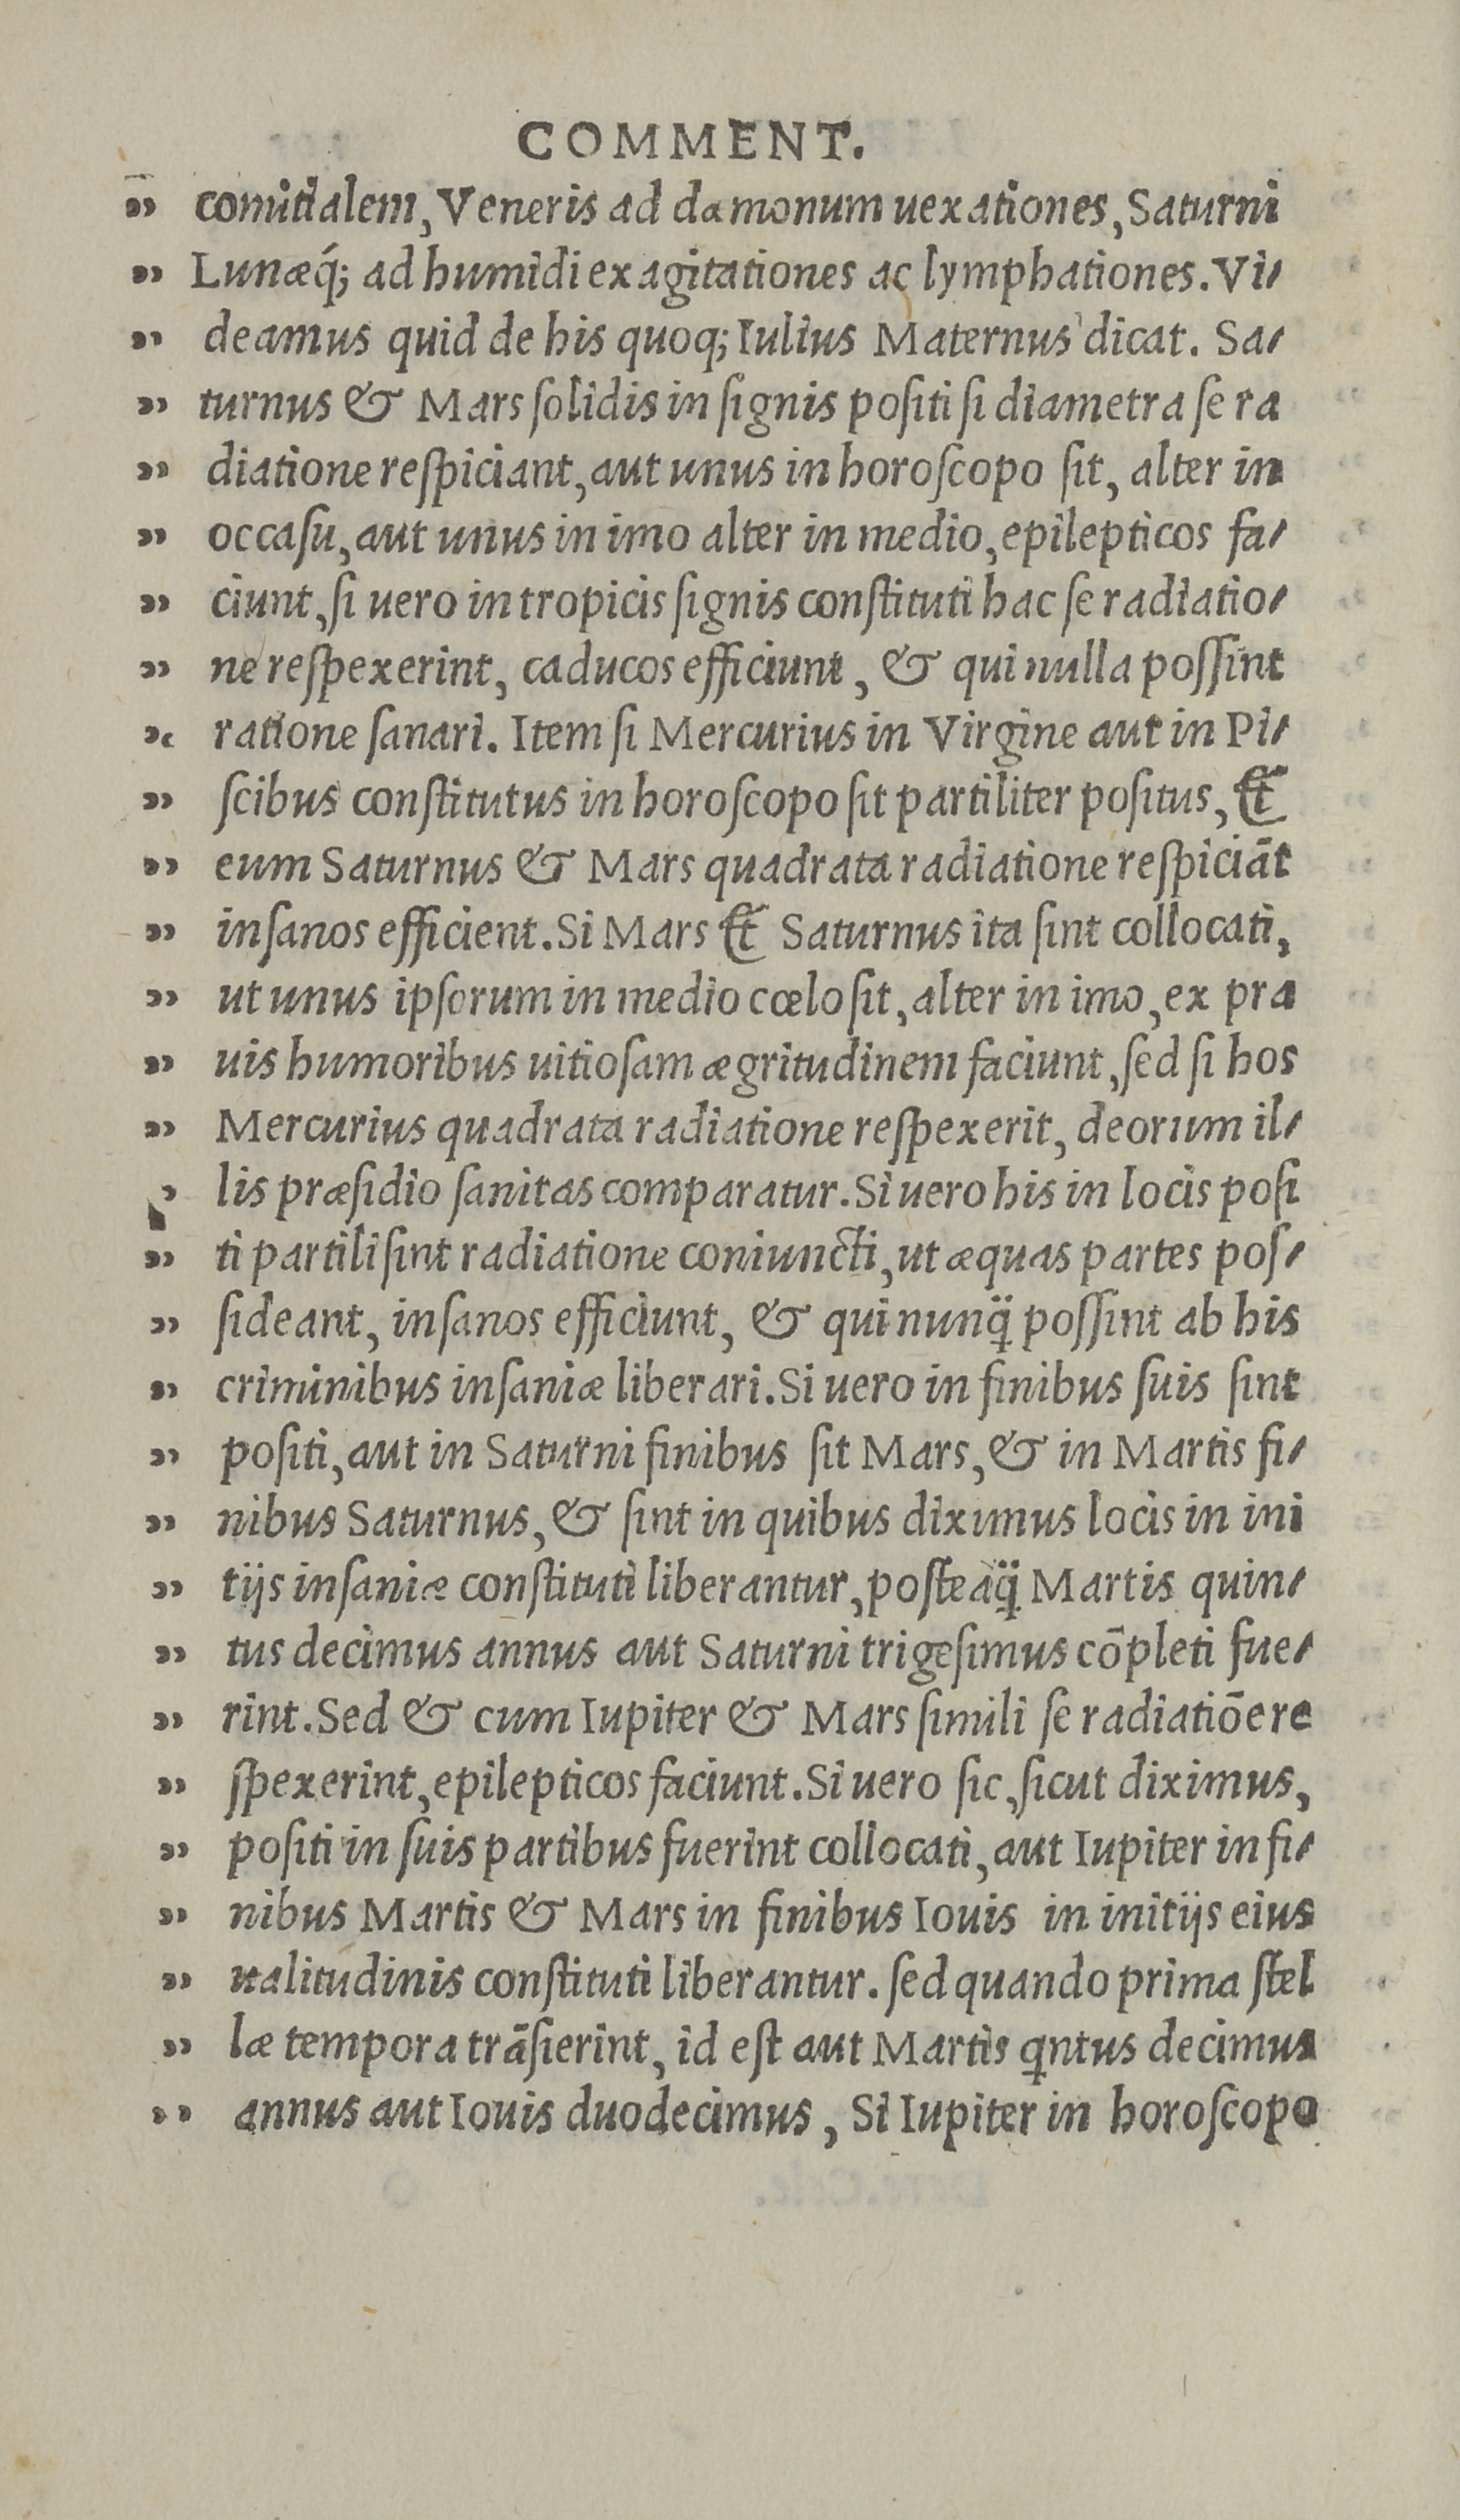 COMMENT.
„ comitialem, Veneris ad dæmonum uexationes, Saturni
„ Lunæq́; ad humidi exagitationes ac lymphationes. Vi-
„ deamus quid de his quoq; Iulius Maternus dicat. Sa-
„ turnus & Mars ſolidis in ſignis poſiti ſi diametra ſe ra
„ diatione reſpiciant, aut unus in horoſcopo ſit, alter in
„ occaſu, aut unus in imo alter in medio, epilepticos fa-
„ ciunt, ſi uero in tropicis ſignis conſtituti hac ſe radiatio-
„ ne reſpexerint, caducos efficiunt, & qui nulla poſſint
„ ratione ſanari. Item ſi Mercurius in Virgine aut in Pi-
„ ſcibus conſtitutus in horoſcopo ſit partiliter poſitus, &
„ eum Saturnus & Mars quadrata radiatione reſpiciāt
„ inſanos efficient. Si Mars & Saturnus ita ſint collocati,
„ ut unus ipſorum in medio cœlo ſit, alter in imo, ex pra
„ uis humoribus uitioſam ægritudinem faciunt, ſed ſi hos
„ Mercurius quadrata radiatione reſpexerit, deorum il-
„ lis præſidio ſanitas comparatur. Si uero his in locis poſi
„ ti partili ſint radiatione coniuncti, ut æquas partes poſ-
„ ſideant, inſanos efficiunt, & qui nunq̈ poſſint ab his
„ criminibus inſaniæ liberari. Si uero in finibus ſuis ſint
„ poſiti, aut in Saturni finibus ſit Mars, & in Martis fi-
„ nibus Saturnus, & ſint in quibus diximus locis in ini
„ tijs inſaniæ conſtituti liberantur, poſteaq̈ Martis quin-
„ tus decimus annus aut Saturni trigeſimus cōpleti fue-
„ rint. Sed & cum Iupiter & Mars ſimili ſe radiatiōe re
„ ſpexerint, epilepticos faciunt. Si uero ſic, ſicut diximus,
„ poſiti in ſuis partibus fuerint collocati, aut Iupiter in fi-
„ nibus Martis & Mars in finibus Iouis in initijs eius
„ ualitudinis conſtituti liberantur. ſed quando prima ſtel
„ læ tempora trāſierint, id eſt aut Martis qntus decimus
„ annus aut Iouis duodecimus, Si Iupiter in horoſcopo